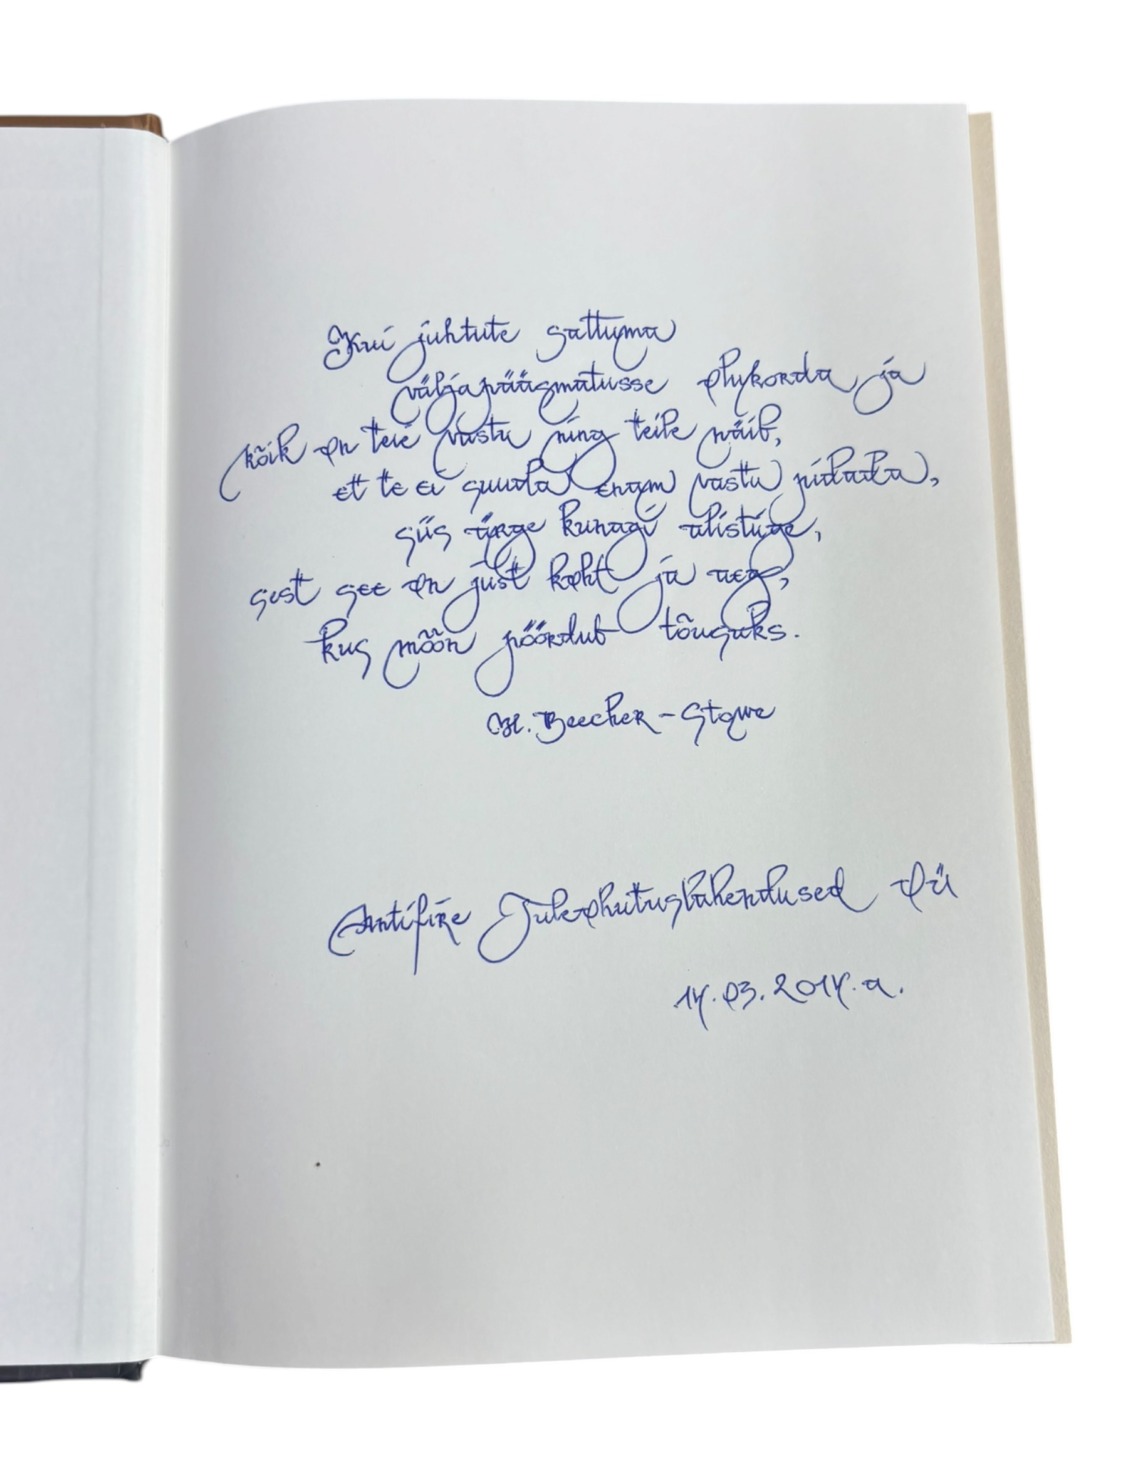 Kui juhtute sattuma
väljapääsmatusse olukorda ja
kõik on teie vastu ning teile näib,
et te ei suuda enam vastu pidada,
siis ärge kunagi alistuge,
sest see on just koht ja aeg,
kus mõõn pöördub tõusuks.
H. Beecher-Stowe
Antifire Tuleohutuslahendused OÜ
14.03.2014.a.